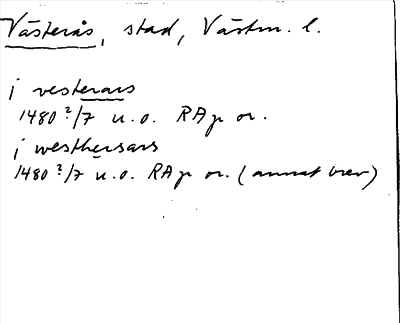 Västerås, stad, Västm. l.
i vesterars
1480 2/7 u.o. RAp or.
i westhersars
1480 2/7 u.o. RAp or. (annat brev)